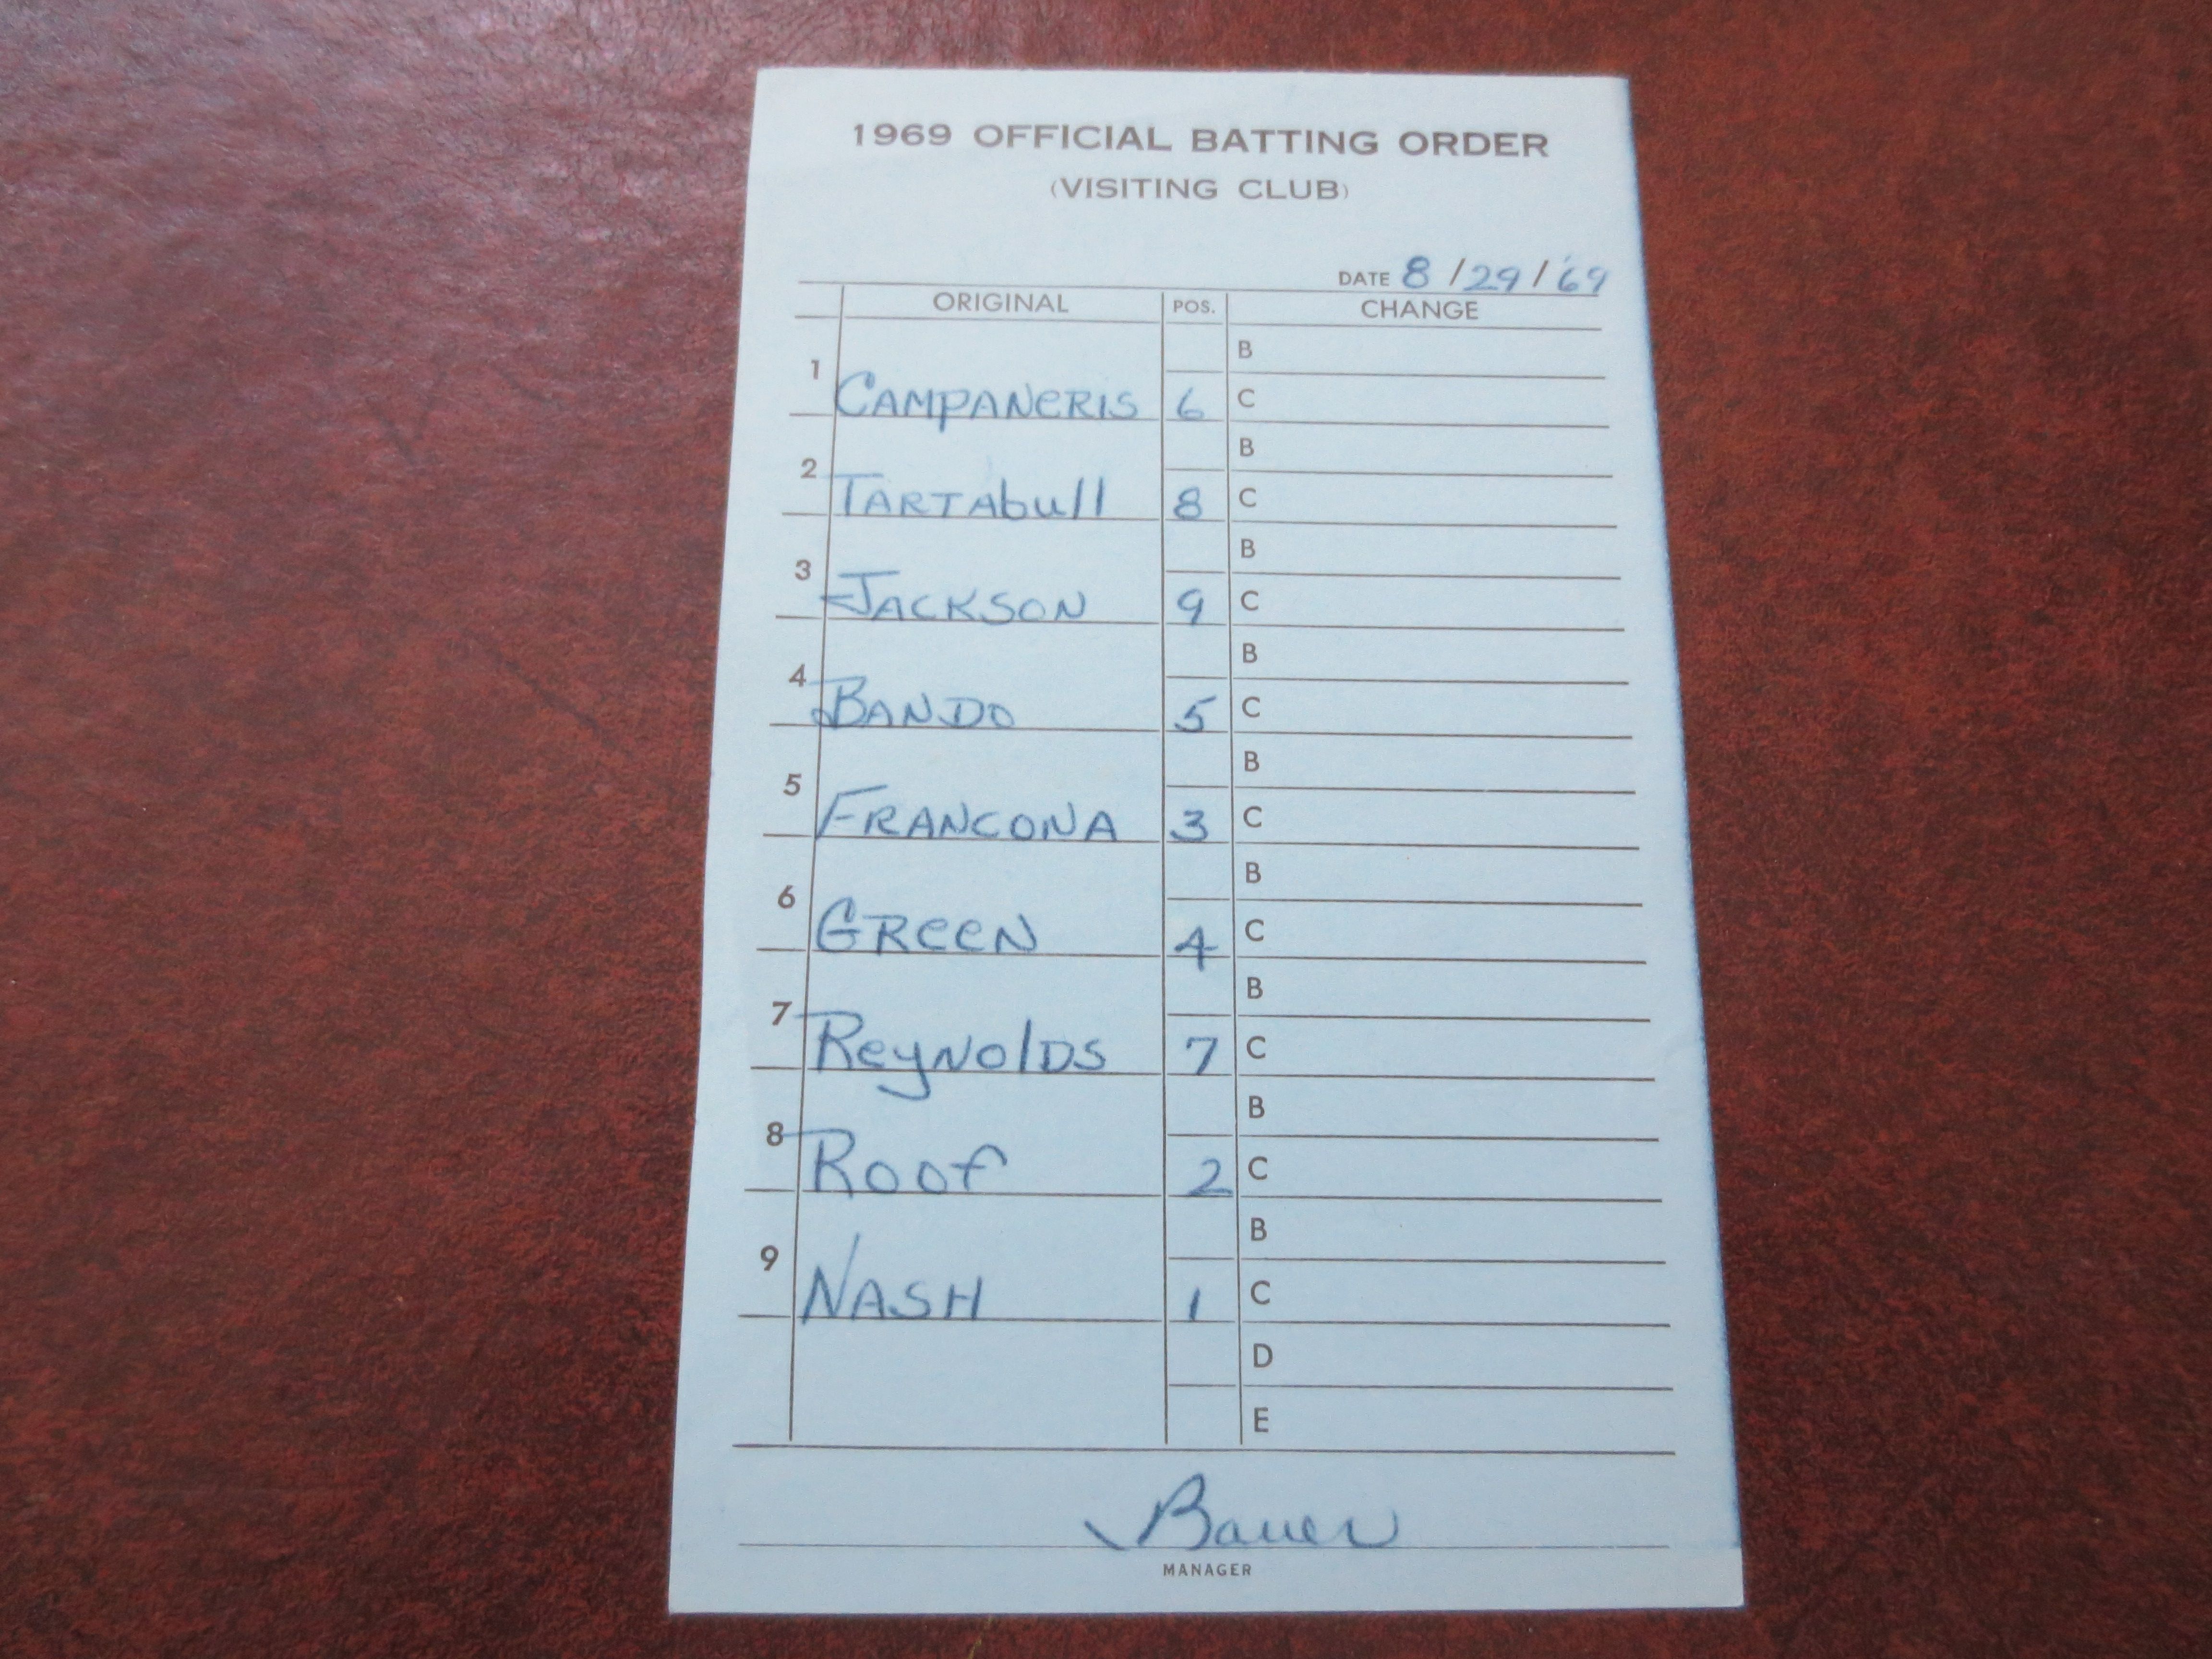 1969 OFFICIAL BATTING ORDER
(VISITING CLUB)
DATE 8/29/'69
ORIGINAL POS. CHANGE
B
1 CAMPANERIS 6 C
B
2 TARTAbull 8 C
B
3 JACKSON 9 C
B
4 BANDO 5 C
B
5 FRANCONA 3 C
B
6 GReeN 4 C
B
7 ReyNolDS 7 C
B
8 Roof 2 C
B
9 NASH 1 C
D
E
Bauer
MANAGER